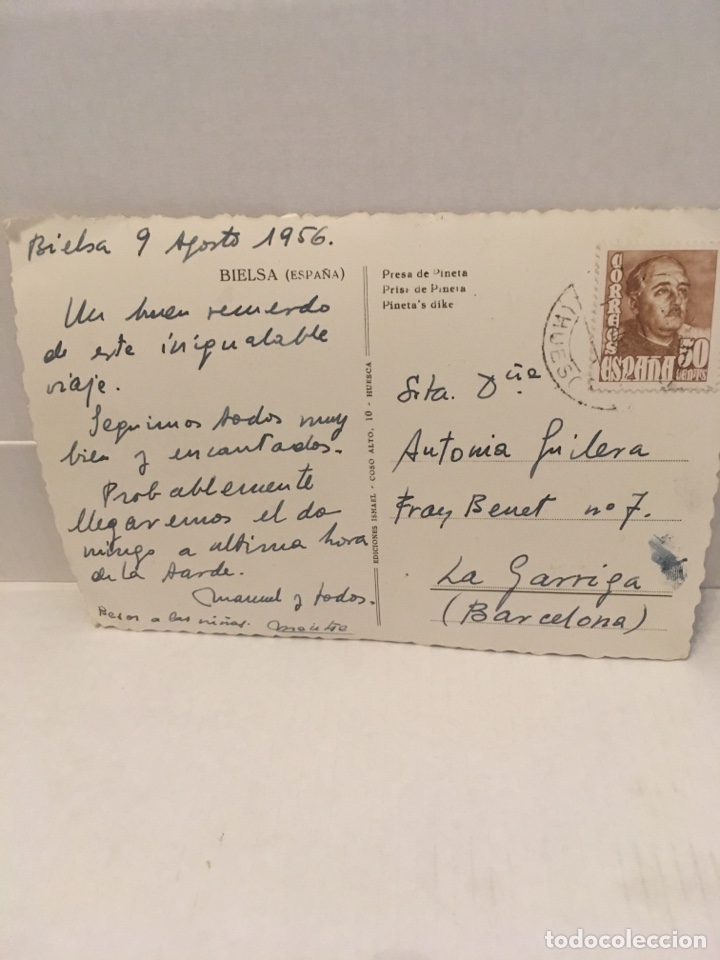 Bielsa 9 Agosto 1956.
BIELSA (ESPAÑA)
Un buen recuerdo
de este inigualable
viaje.
Seguimos todos muy
bien y encantados.
Probablemente
llegaremos el do
mingo a ultima hora
de la tarde.
Manuel y todos.
Besos a las niñas.
EDICIONES ISMAEL - COSO ALTO, 10 - HUESCA
Presa de Pineta
Prise de Pineta
Pineta's dike
(HUES
CORREOS
ESPAÑA
50
CENTS
Srta. Dña
Antonia Guilera
Fray Benet nº 7.
La Garriga
(Barcelona)
todocoleccion